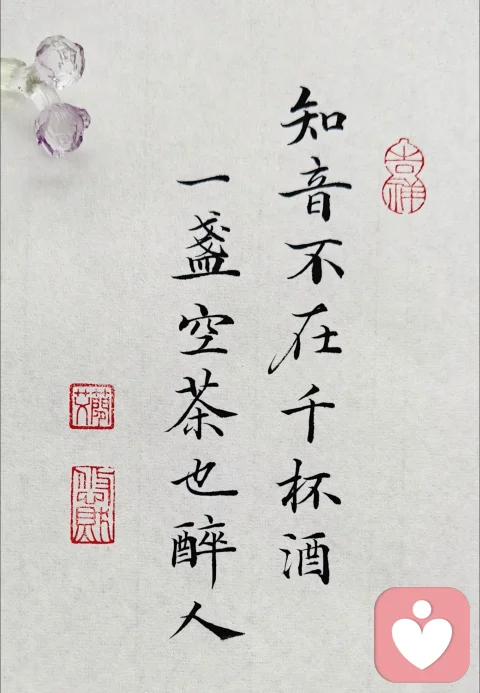 知音不在千杯酒
一盏空茶也醉人
吉祥